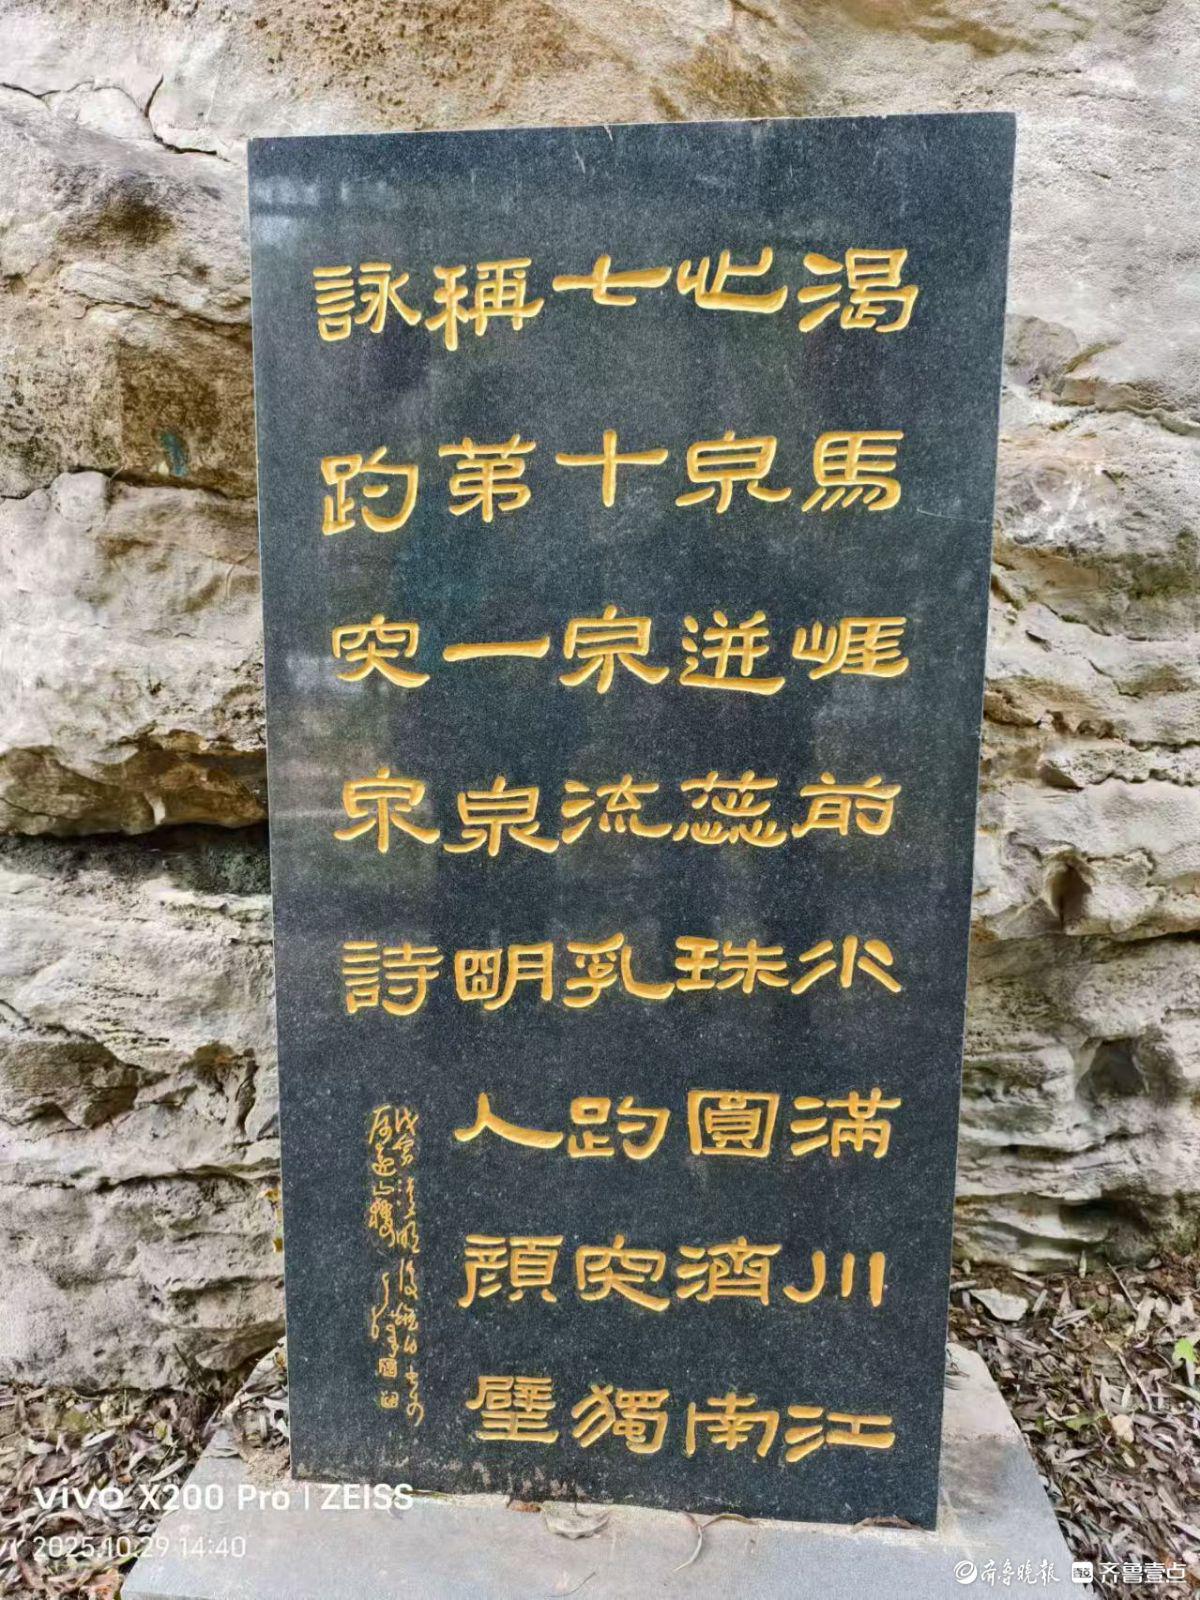 渴馬崕前水滿川江
心泉迸蕊珠圓濟南
七十泉流乳趵突獨
稱第一泉朙人顔壁
詠趵突泉詩
vivo X200 Pro | ZEISS
2025.10.29 14:40
齐鲁晚报 齐鲁壹点